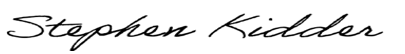 Stephen Kidder